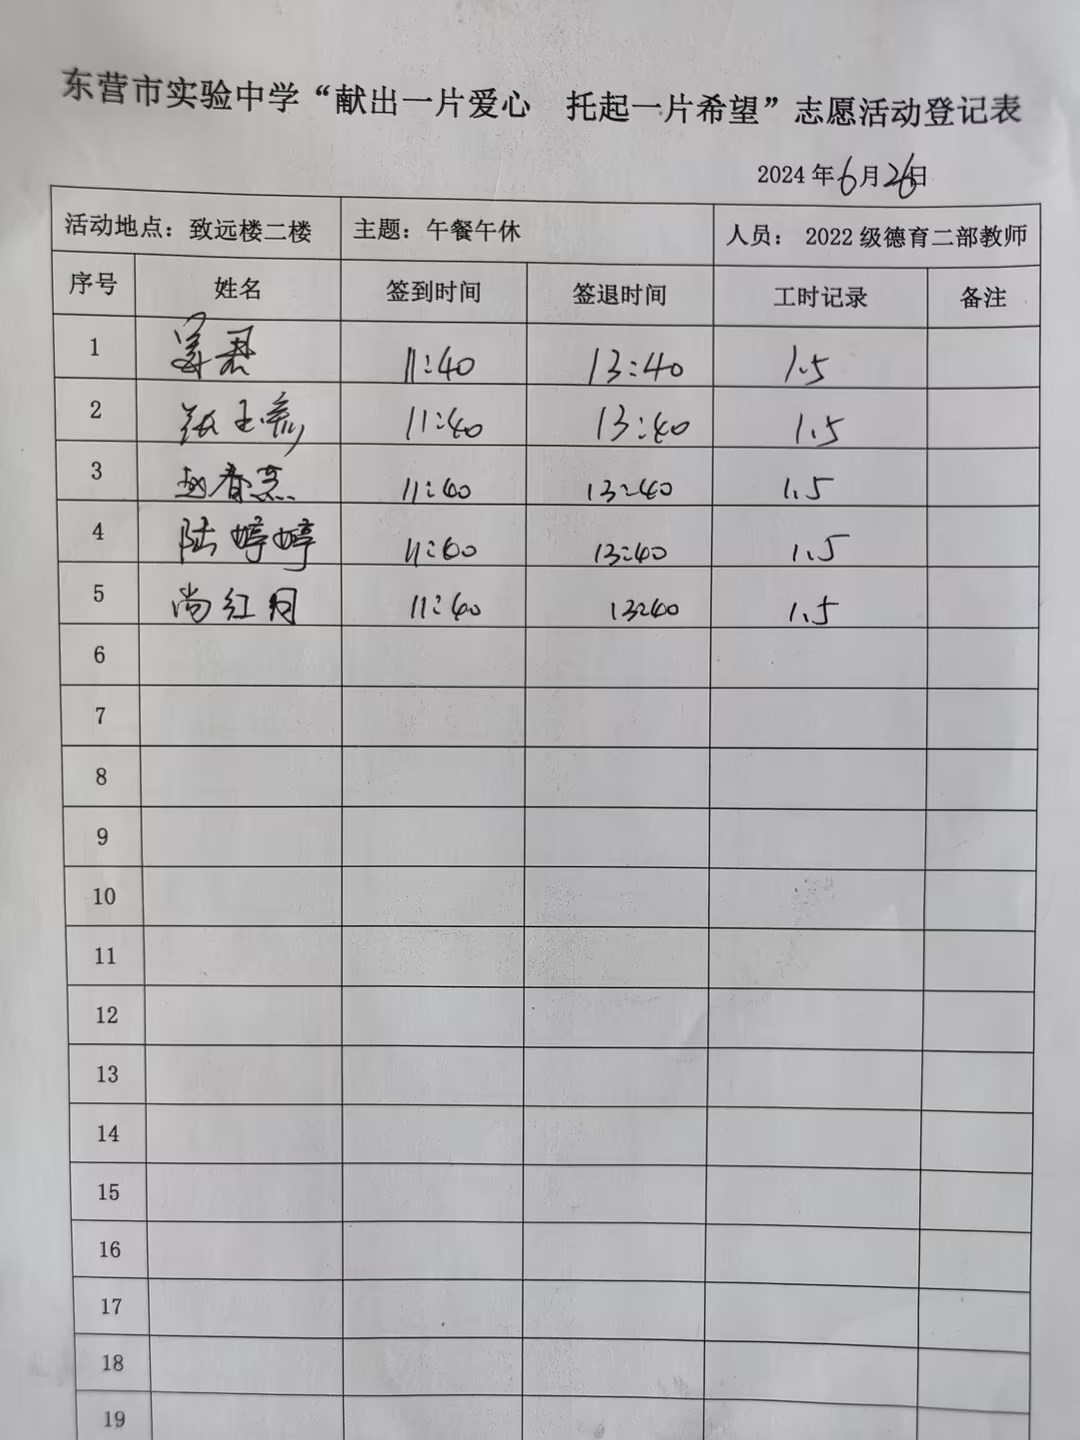 东营市实验中学“献出一片爱心 托起一片希望”志愿活动登记表
2024年6月26日
活动地点：致远楼二楼 主题：午餐午休 人员：2022级德育二部教师
序号 姓名 签到时间 签退时间 工时记录 备注
1 姜君 11:40 13:40 1.5
2 张玉 11:40 13:40 1.5
3 赵春燕 11:40 13:40 1.5
4 陆婷婷 11:40 13:40 1.5
5 尚红月 11:40 13:40 1.5
6
7
8
9
10
11
12
13
14
15
16
17
18
19